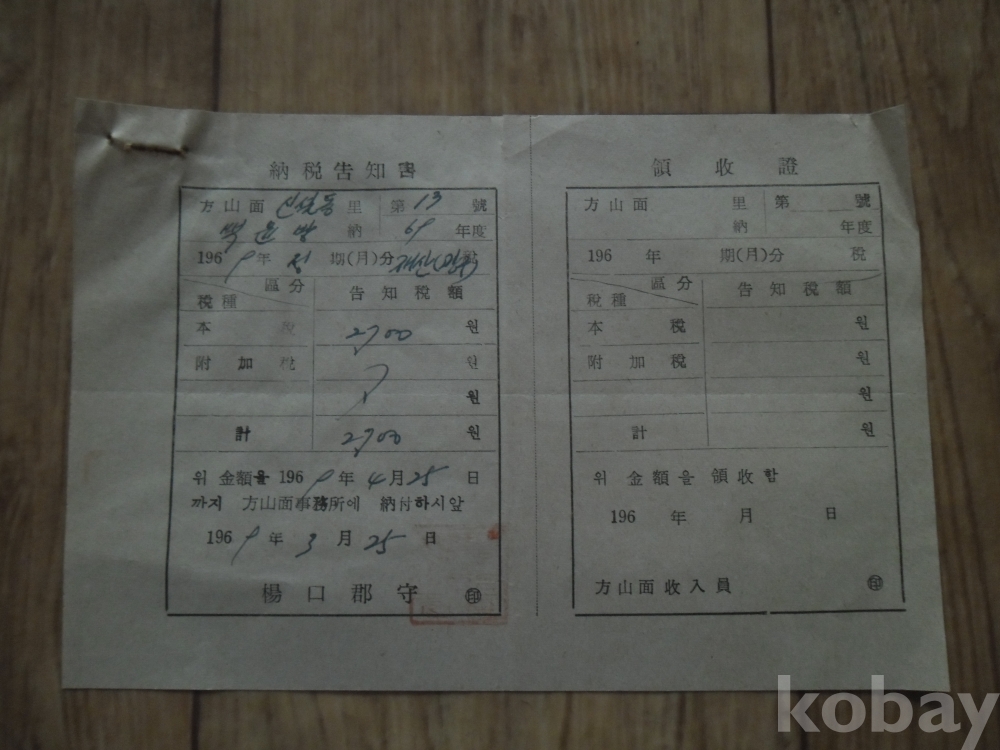 納税告知書
方山面 里 第 13 號
納 69 年度
196 9 年 期(月)分 税
區分
稅種
告知稅額
本 稅 2,700 원
附加稅 원
원
計 2,700 원
위 金額을 196 9 年 4 月 25 日
까지 方山面事務所에 納付하시앞
196 9 年 3 月 25 日
楊口郡守 ㊞
領收證
方山面 里 第 號
納 年度
196 年 期(月)分 稅
區分
稅種
告知稅額
本 稅 원
附加稅 원
원
計 원
위 金額을 領收함
196 年 月 日
方山面收入員 ㊞
kobay